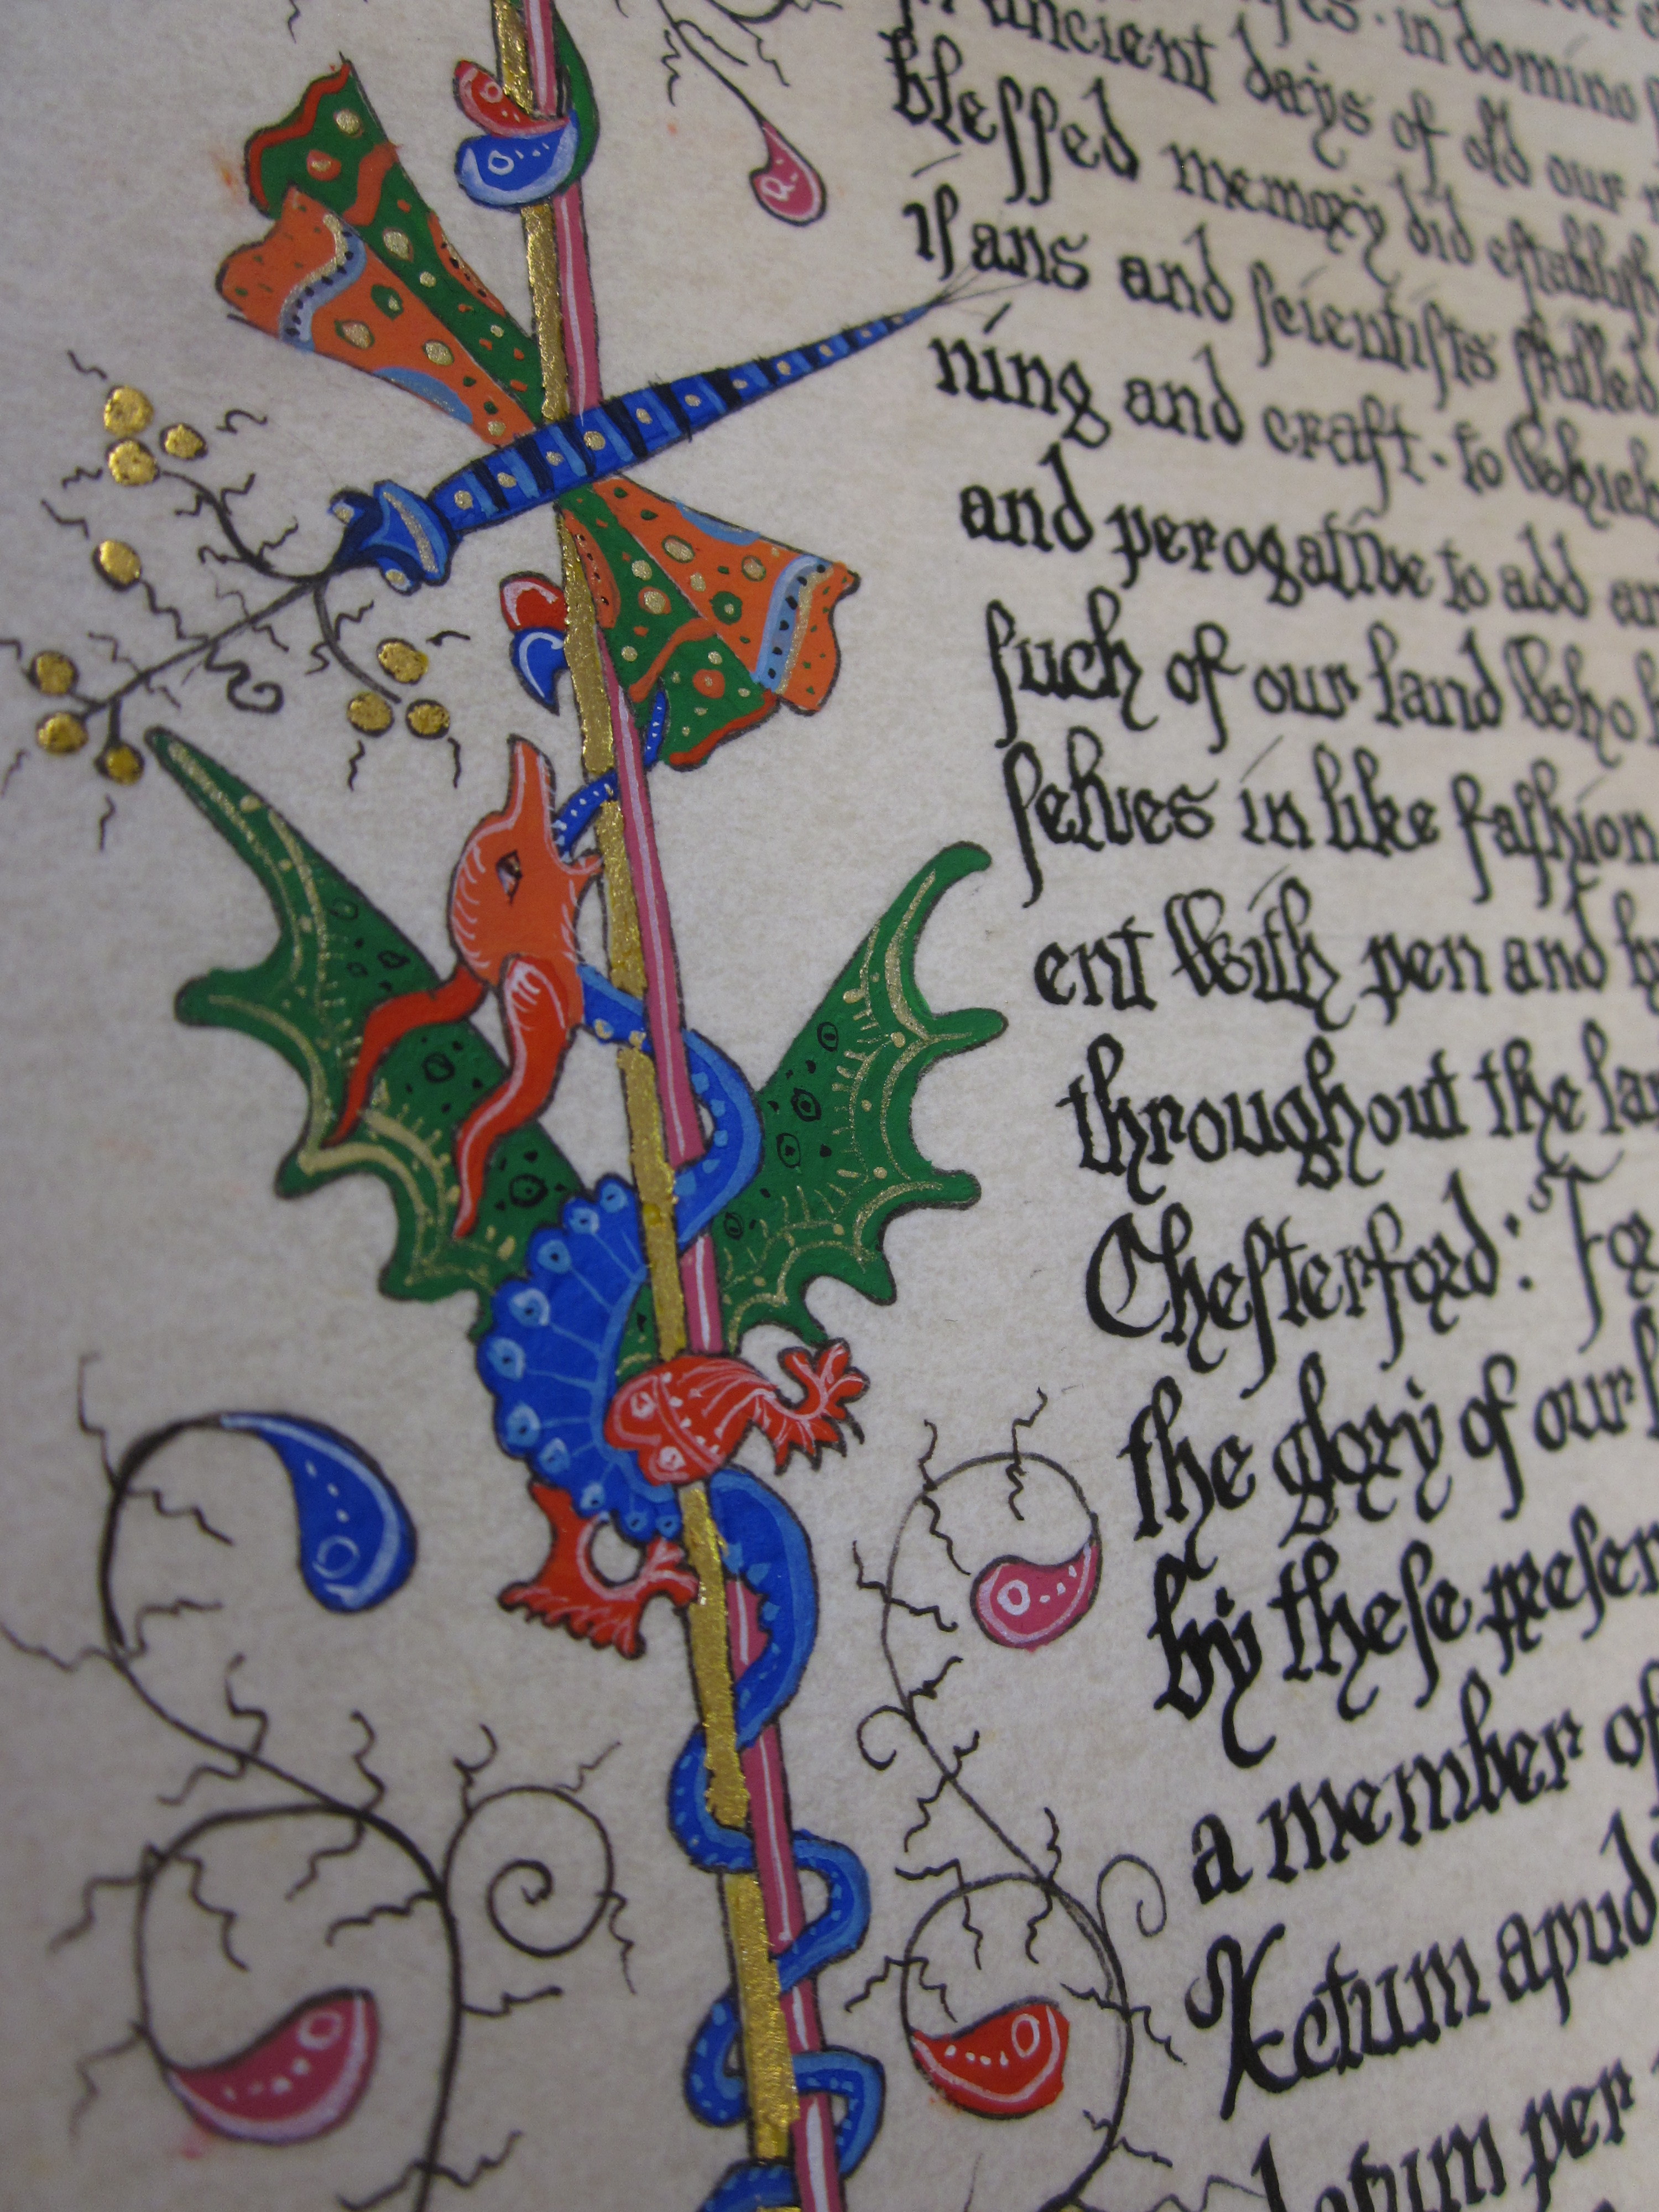 in domino
ancient days of old our
blessed memory did establish
isans and scientists skilled
ning and craft · to which
and perogative to add
such of our land who
selves in like fashion
ent with pen and
throughout the
Chesterford: For
the glory of our
by these presen
a member of
Actum apud
per